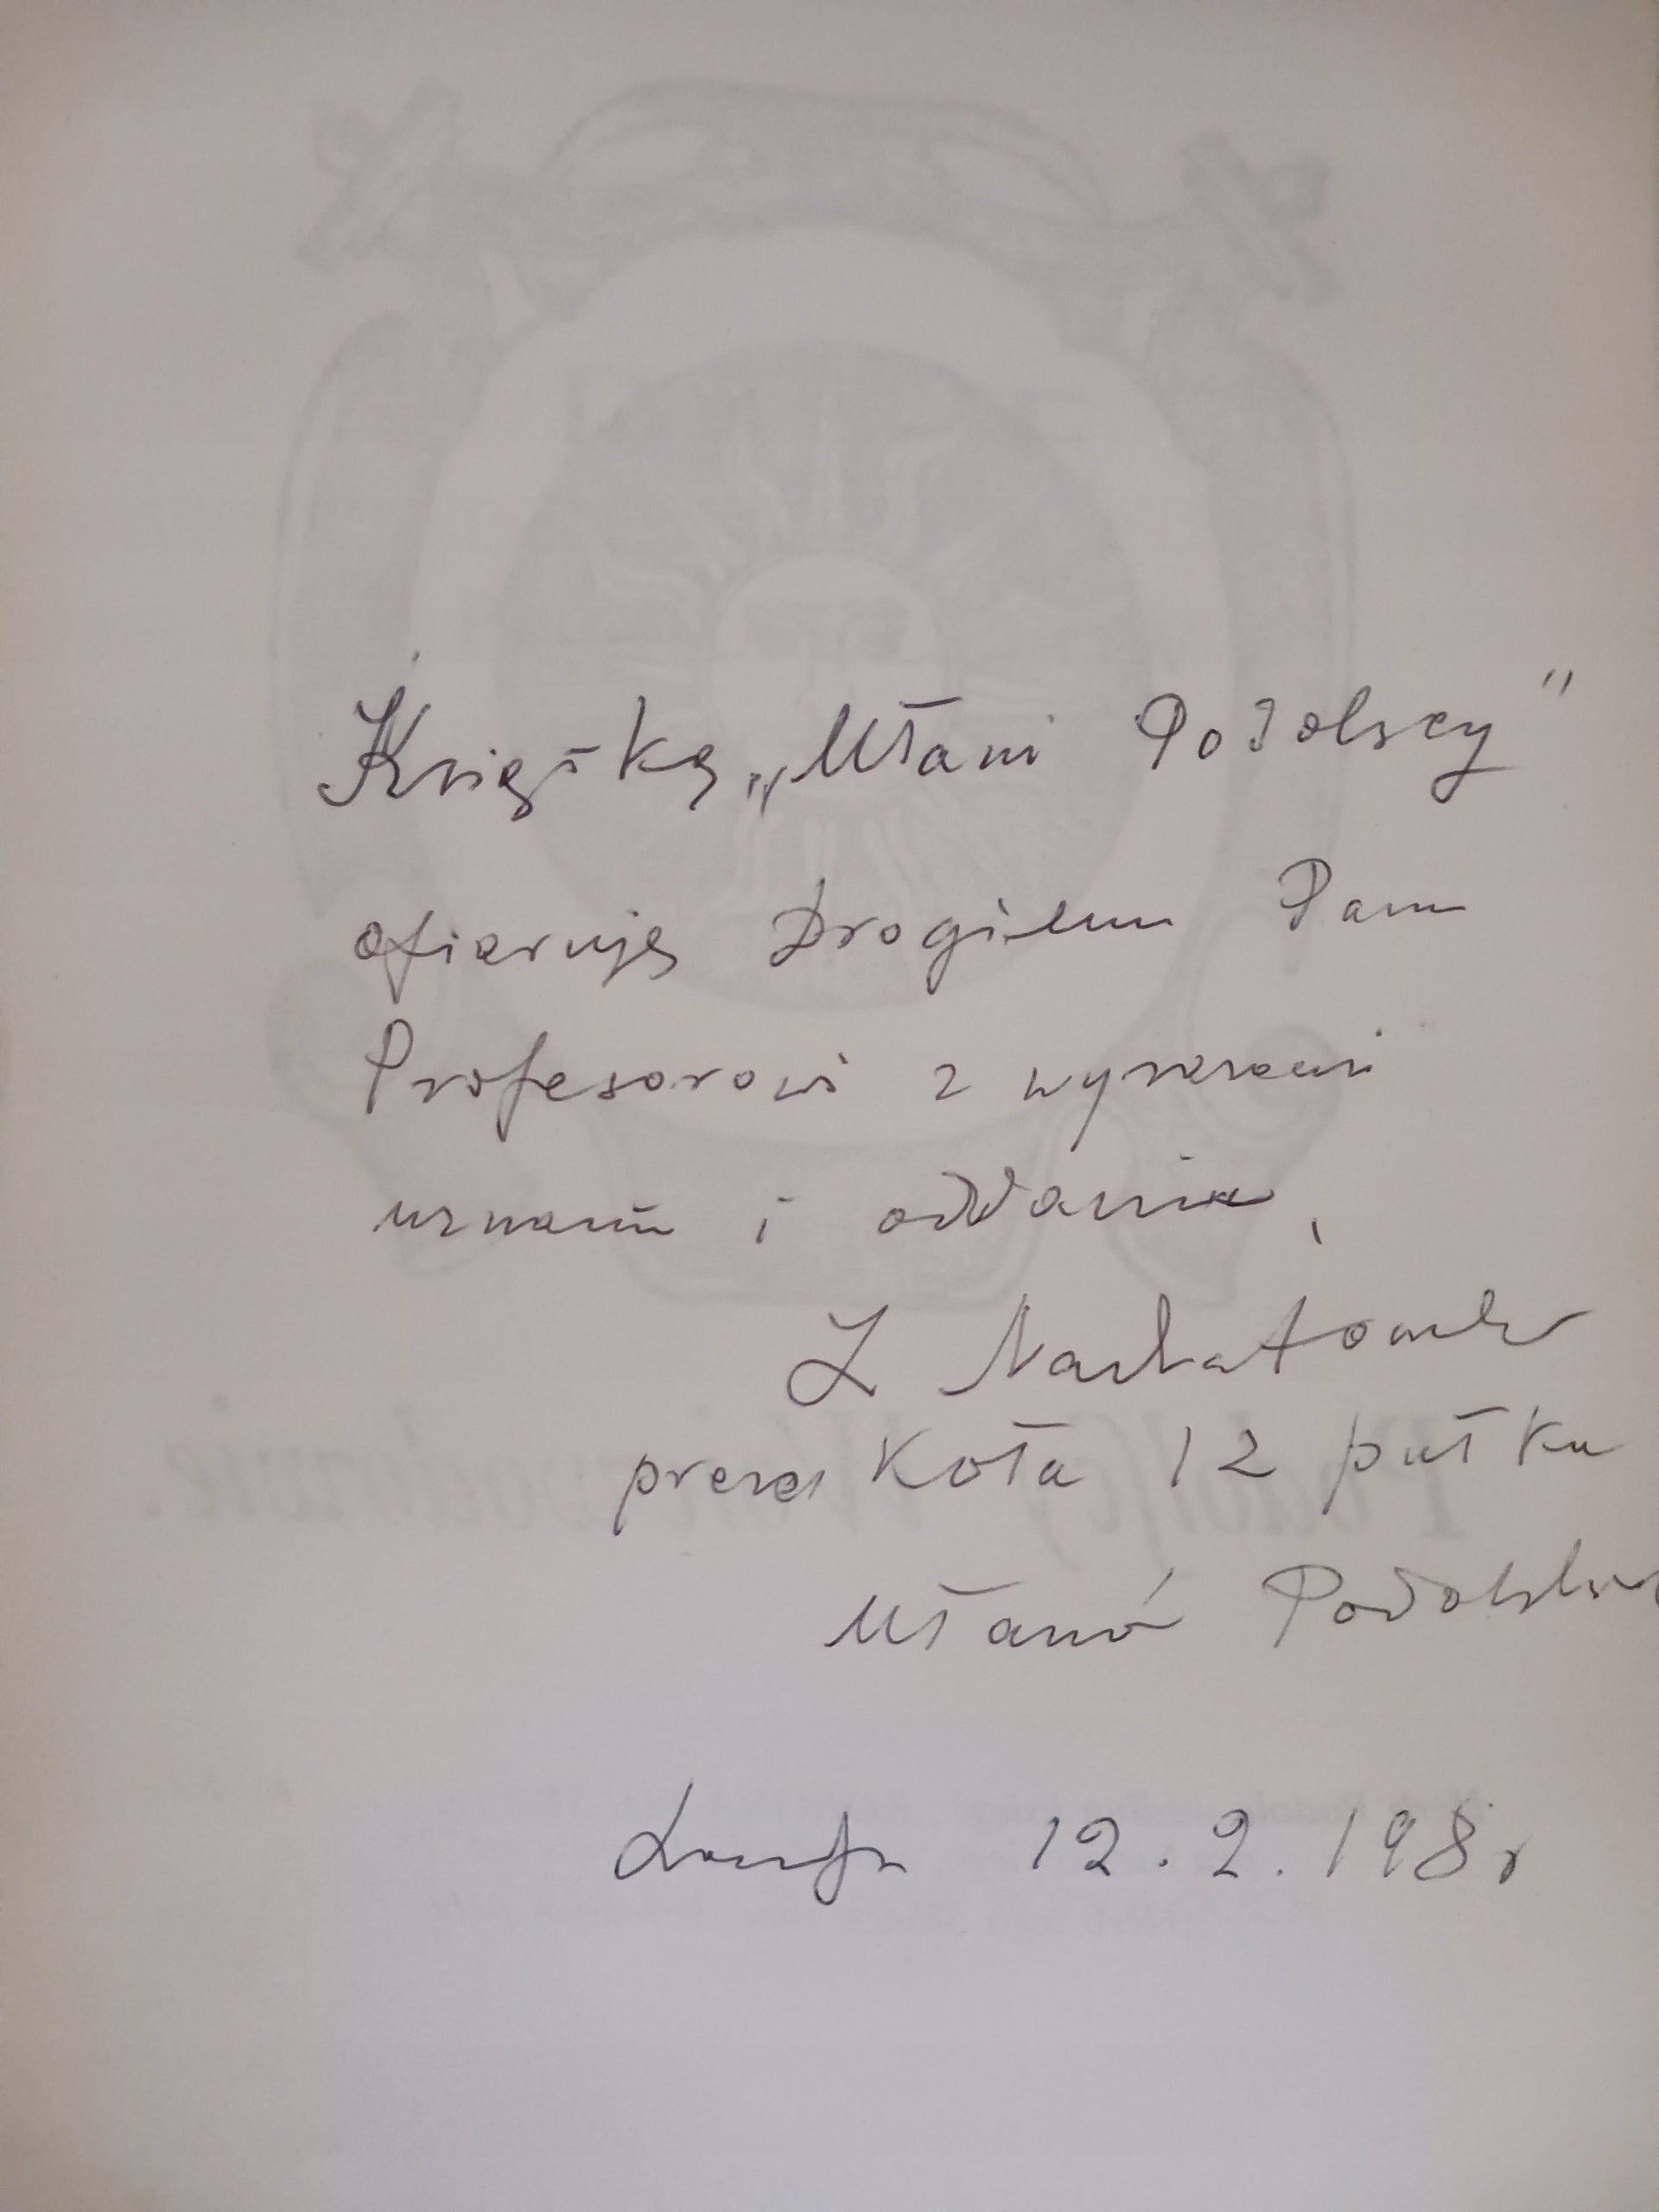 Książkę „Ułani Podolscy"
ofiaruję Drogiemu Panu
Profesorowi z wyrazami
uznania i oddania,
Z
prezes Koła 12 pułku
Ułanów Podolskich
12.2.198